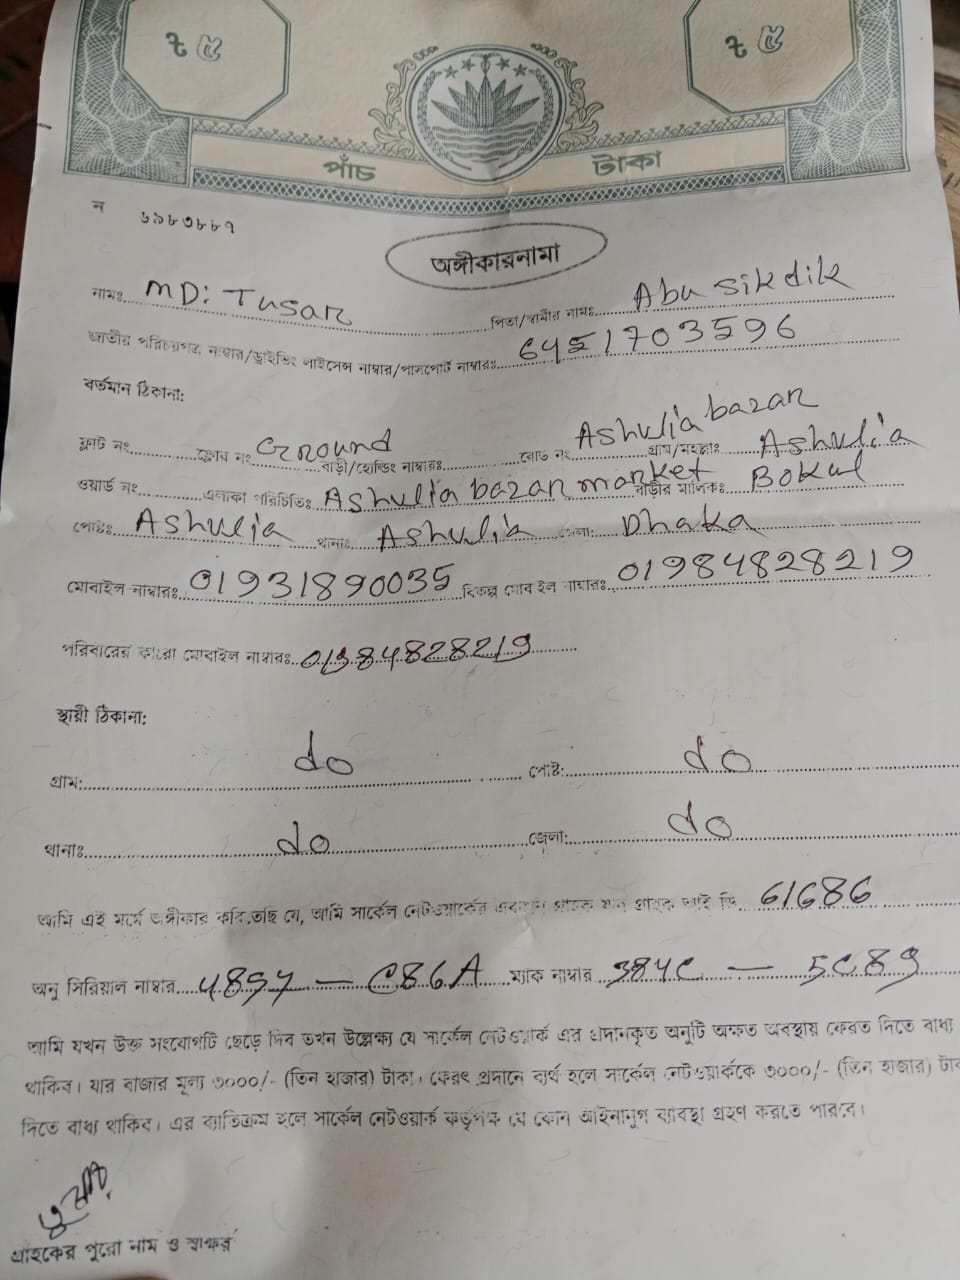 ৳ ৫ ৳ ৫
পাঁচ টাকা
ন ৬৯৮৩৮৮৭
অঙ্গীকারনামা
নামঃ MD: Tusar পিতা/স্বামীর নামঃ Abu sikdik
জাতীয় পরিচয়পত্র নাম্বার/ড্রাইভিং লাইসেন্স নাম্বার/পাসপোর্ট নাম্বারঃ 6451703596
বর্তমান ঠিকানা:
ফ্লাট নং ফ্লোর নং Ground বাড়ী/হোল্ডিং নাম্বারঃ রোড নং Ashulia bazar গ্রাম/মহল্লাঃ Ashulia
ওয়ার্ড নং এলাকা পরিচিতিঃ Ashulia bazar market বাড়ীর মালিকঃ Bokul
পোষ্টঃ Ashulia থানাঃ Ashulia জেলা: Dhaka
মোবাইল নাম্বারঃ 01931890035 বিকল্প মোবাইল নাম্বারঃ 01984828219
পরিবারের কারো মোবাইল নাম্বারঃ 01984828219
স্থায়ী ঠিকানা:
গ্রাম: do পোষ্ট: do
থানাঃ do জেলা: do
আমি এই মর্মে অঙ্গীকার করিতেছি যে, আমি সার্কেল নেটওয়ার্কের একজন গ্রাহক যার গ্রাহক আই ডি 61686
অনু সিরিয়াল নাম্বার 4857 — C86A ম্যাক নাম্বার 384C — 5C89
আমি যখন উক্ত সংযোগটি ছেড়ে দিব তখন উল্লেক্ষ্য যে সার্কেল নেটওয়ার্ক এর প্রদানকৃত অনুটি অক্ষত অবস্থায় ফেরত দিতে বাধ্য
থাকিব। যার বাজার মূল্য ৩০০০/- (তিন হাজার) টাকা। ফেরৎ প্রদানে ব্যর্থ হলে সার্কেল নেটওয়ার্ককে ৩০০০/- (তিন হাজার)
দিতে বাধ্য থাকিব। এর ব্যতিক্রম হলে সার্কেল নেটওয়ার্ক কর্তৃপক্ষ যে কোন আইনানুগ ব্যবস্থা গ্রহণ করতে পারবে।
গ্রাহকের পুরো নাম ও স্বাক্ষর